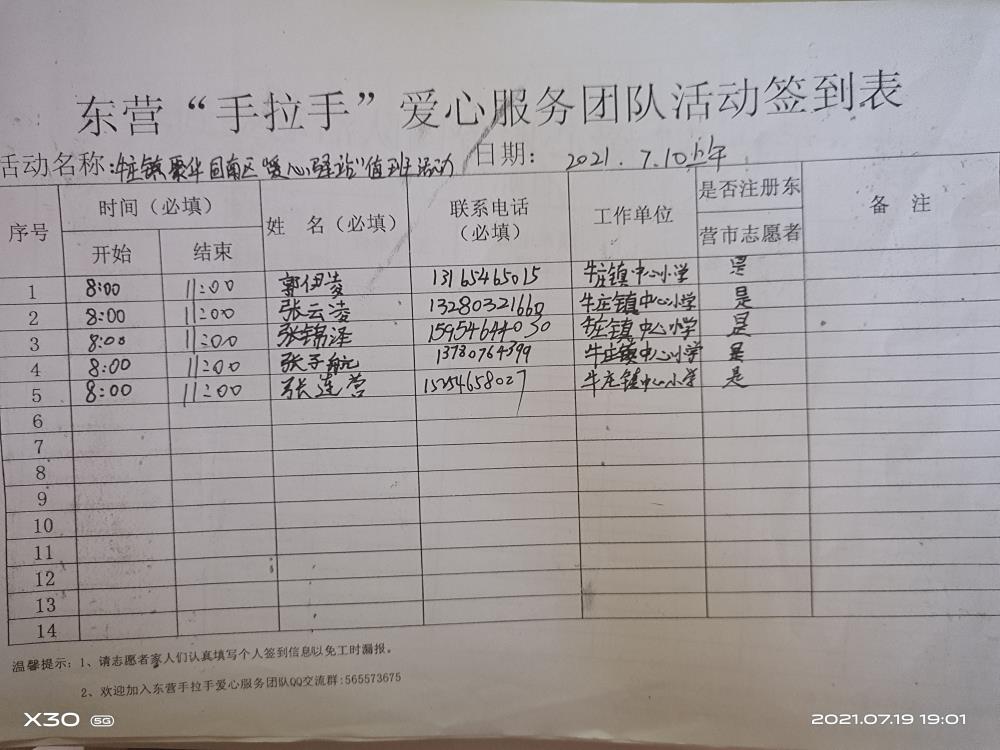 东营“手拉手”爱心服务团队活动签到表
活动名称:牛庄镇聚华园南区“爱心驿站”值班活动 日期: 2021.7.10上午
序号 时间（必填） 姓 名（必填） 联系电话（必填） 工作单位 是否注册东营市志愿者 备 注
开始 结束
1 8:00 11:00 郭伊凌 13165465015 牛庄镇中心小学 是
2 8:00 11:00 张云凌 13280321660 牛庄镇中心小学 是
3 8:00 11:00 张锦泽 15954644050 牛庄镇中心小学 是
4 8:00 11:00 张子航 13730764399 牛庄镇中心小学 是
5 8:00 11:00 张连营 15254658027 牛庄镇中心小学 是
6
7
8
9
10
11
12
13
14
温馨提示：1、请志愿者家人们认真填写个人签到信息以免工时漏报。
2、欢迎加入东营手拉手爱心服务团队QQ交流群:565573675
X30 5G
2021.07.19 19:01